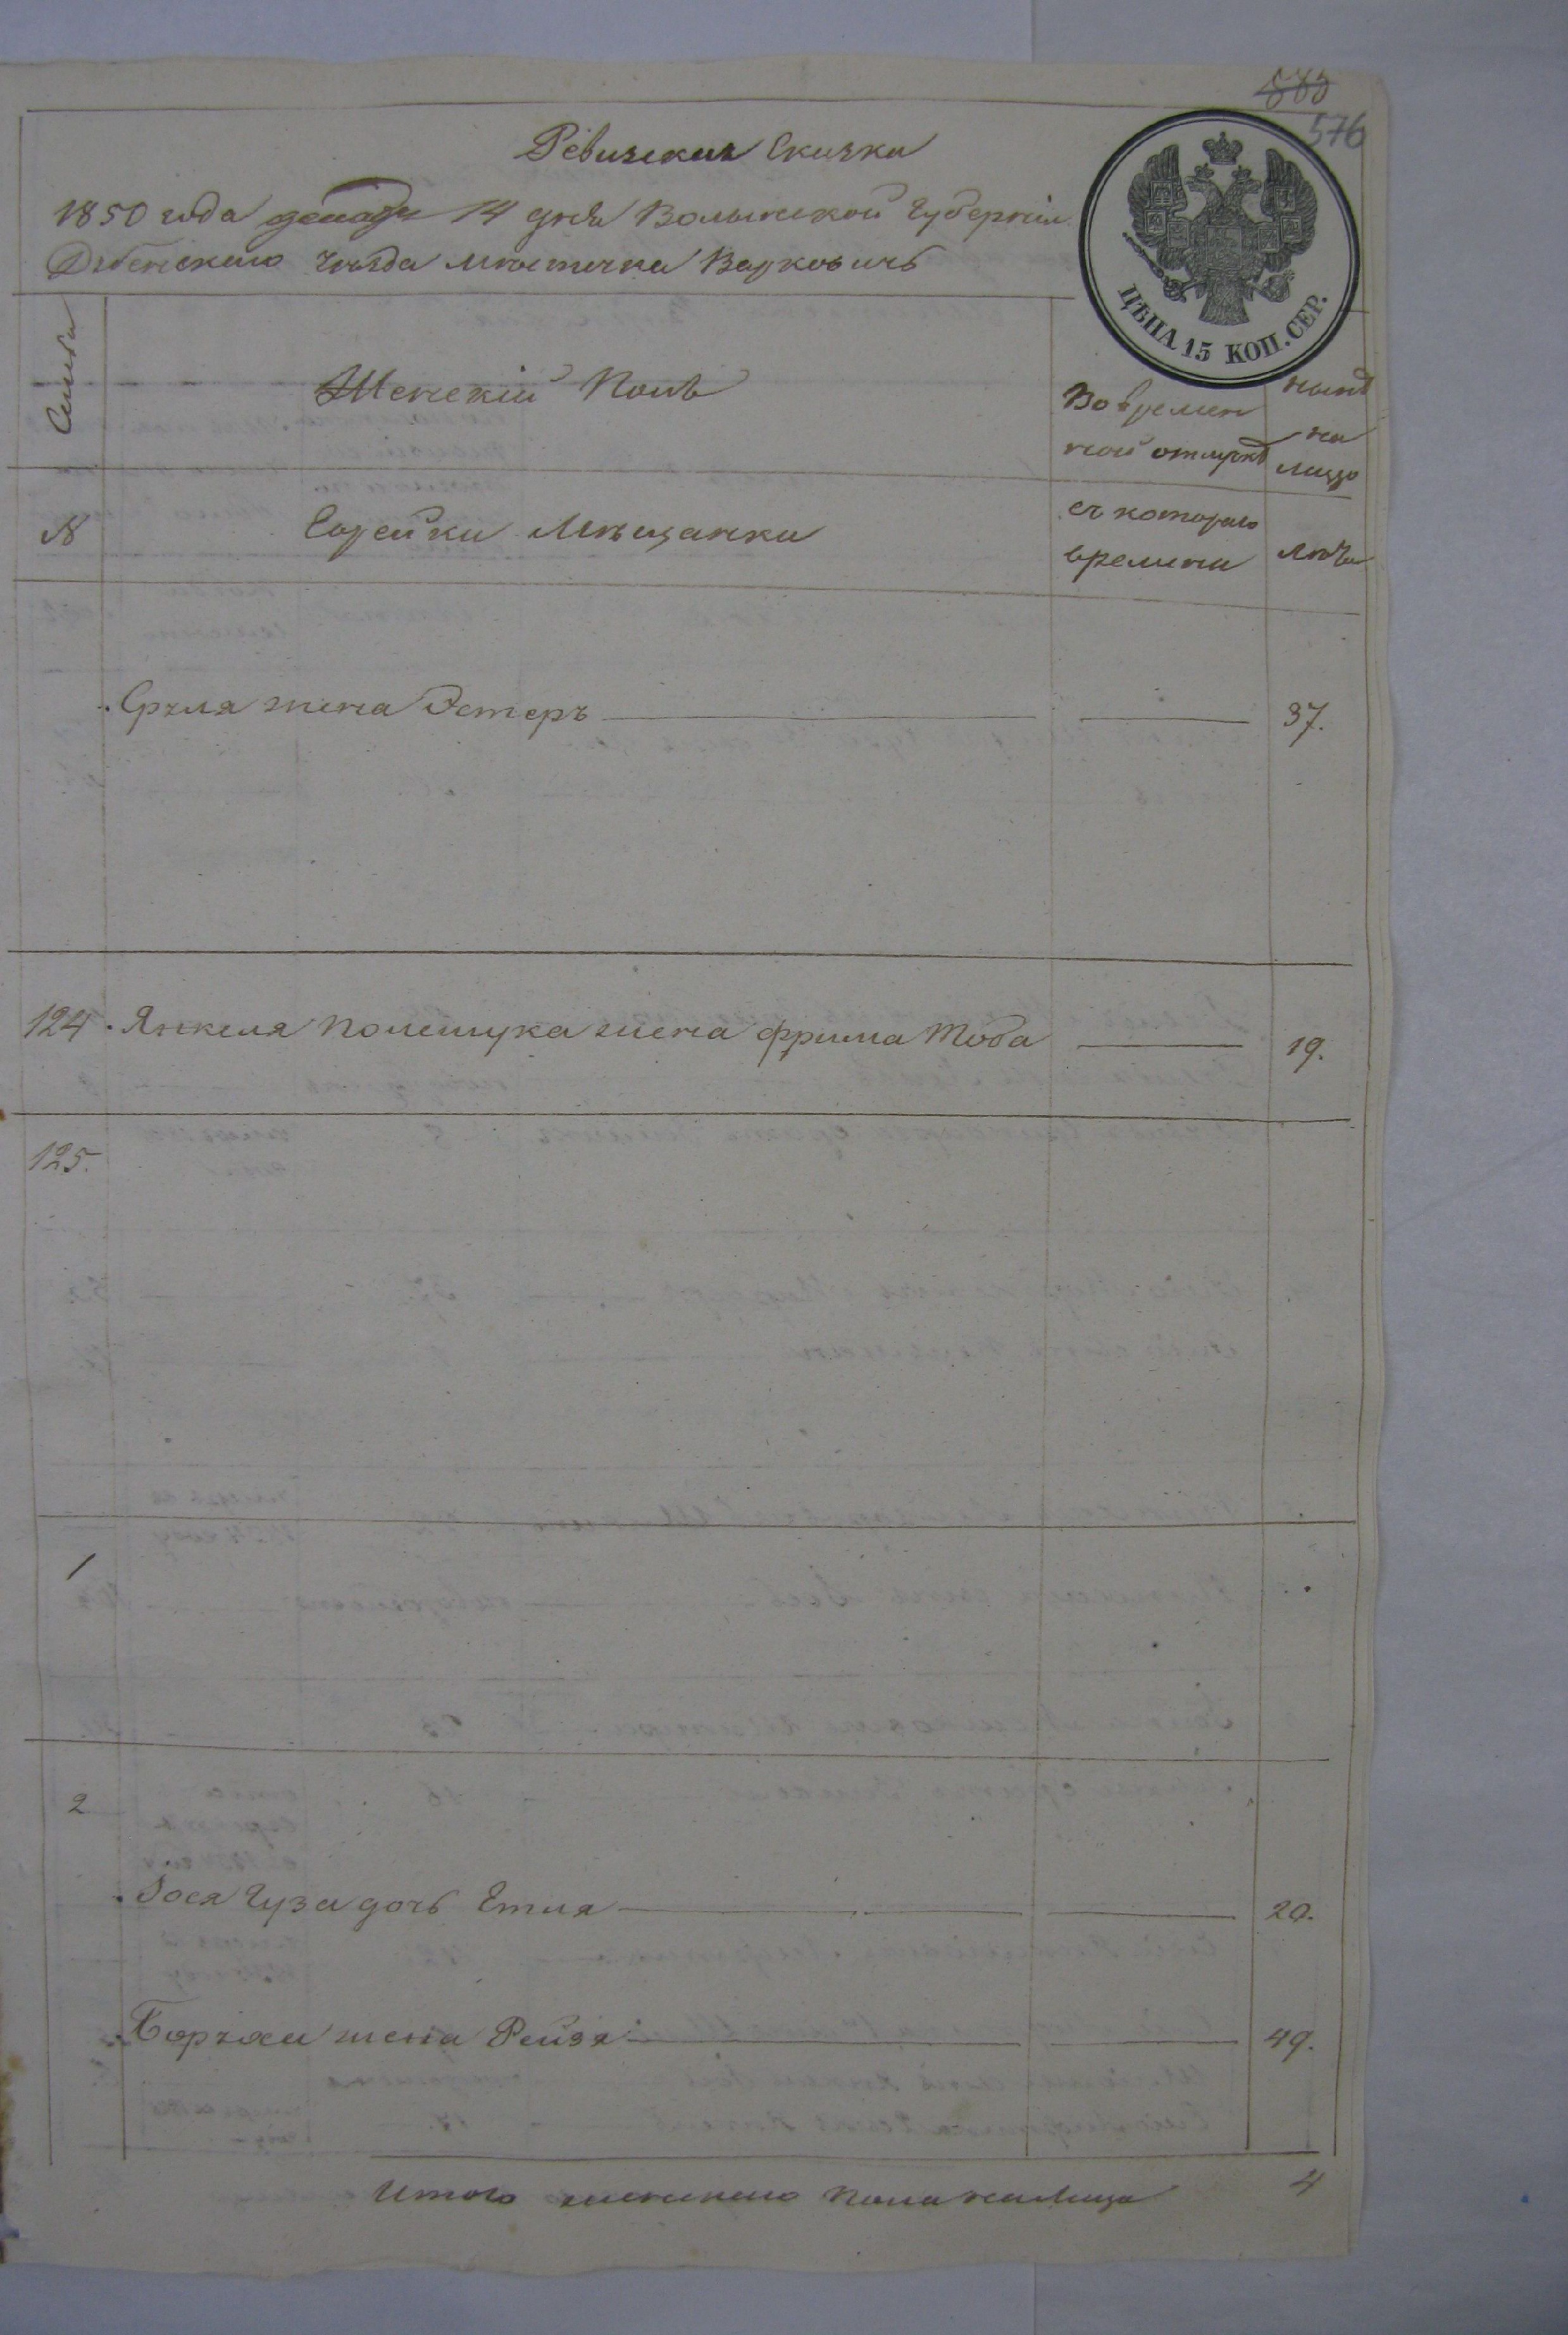 585
576
Ревизская Сказка
1850 года декабря 14 дня Волынской Губернiи
Дубенского уѣзда мѣстечка Варковичь
ЦѢНА 15 КОП. СЕР.
Семьи
Женскiй Полъ
Во времен
ной отлучкѣ
нынѣ
на
лицо
№
Еврейки Мѣщанки
съ котораго
времяни
лѣта
Сруля жена Эстеръ
37.
124
Янкеля Полещука жена Фрима Тоба
19.
125.
1
2
Іося Гуза дочь Етля
20.
Борuха жена Рейзя
49.
Итого женскаго пола налицо
4